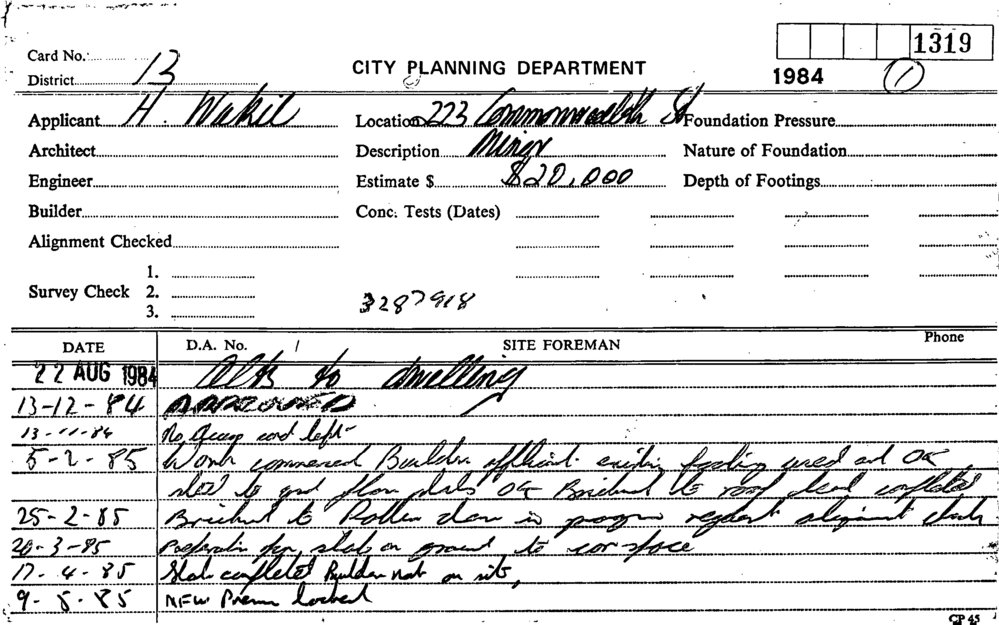 1319
Card No.
13
CITY PLANNING DEPARTMENT
1984
1
District
Applicant H. Wakil Location 223 Commonwealth St Foundation Pressure
Architect Description Minor Nature of Foundation
Engineer Estimate $ $20,000 Depth of Footings
Builder Conc. Tests (Dates)
Alignment Checked
1.
Survey Check 2.
3287918
3.
DATE D.A. No. / SITE FOREMAN Phone
22 AUG 1984 Alts to dwelling
13-12-84 APPROVED
13-11-84 No card left
5-2-85 Work commenced Builder existing footing used and OK
steel to floor slabs OK Brickwork to roof completed
25-2-85 Brickwork to Roller door in progress request alignment check
20-3-85 Preparation for slab on ground to car space
17-4-85 Slab completed Builder not on site,
9-5-85 NFW Premises locked
CP 45